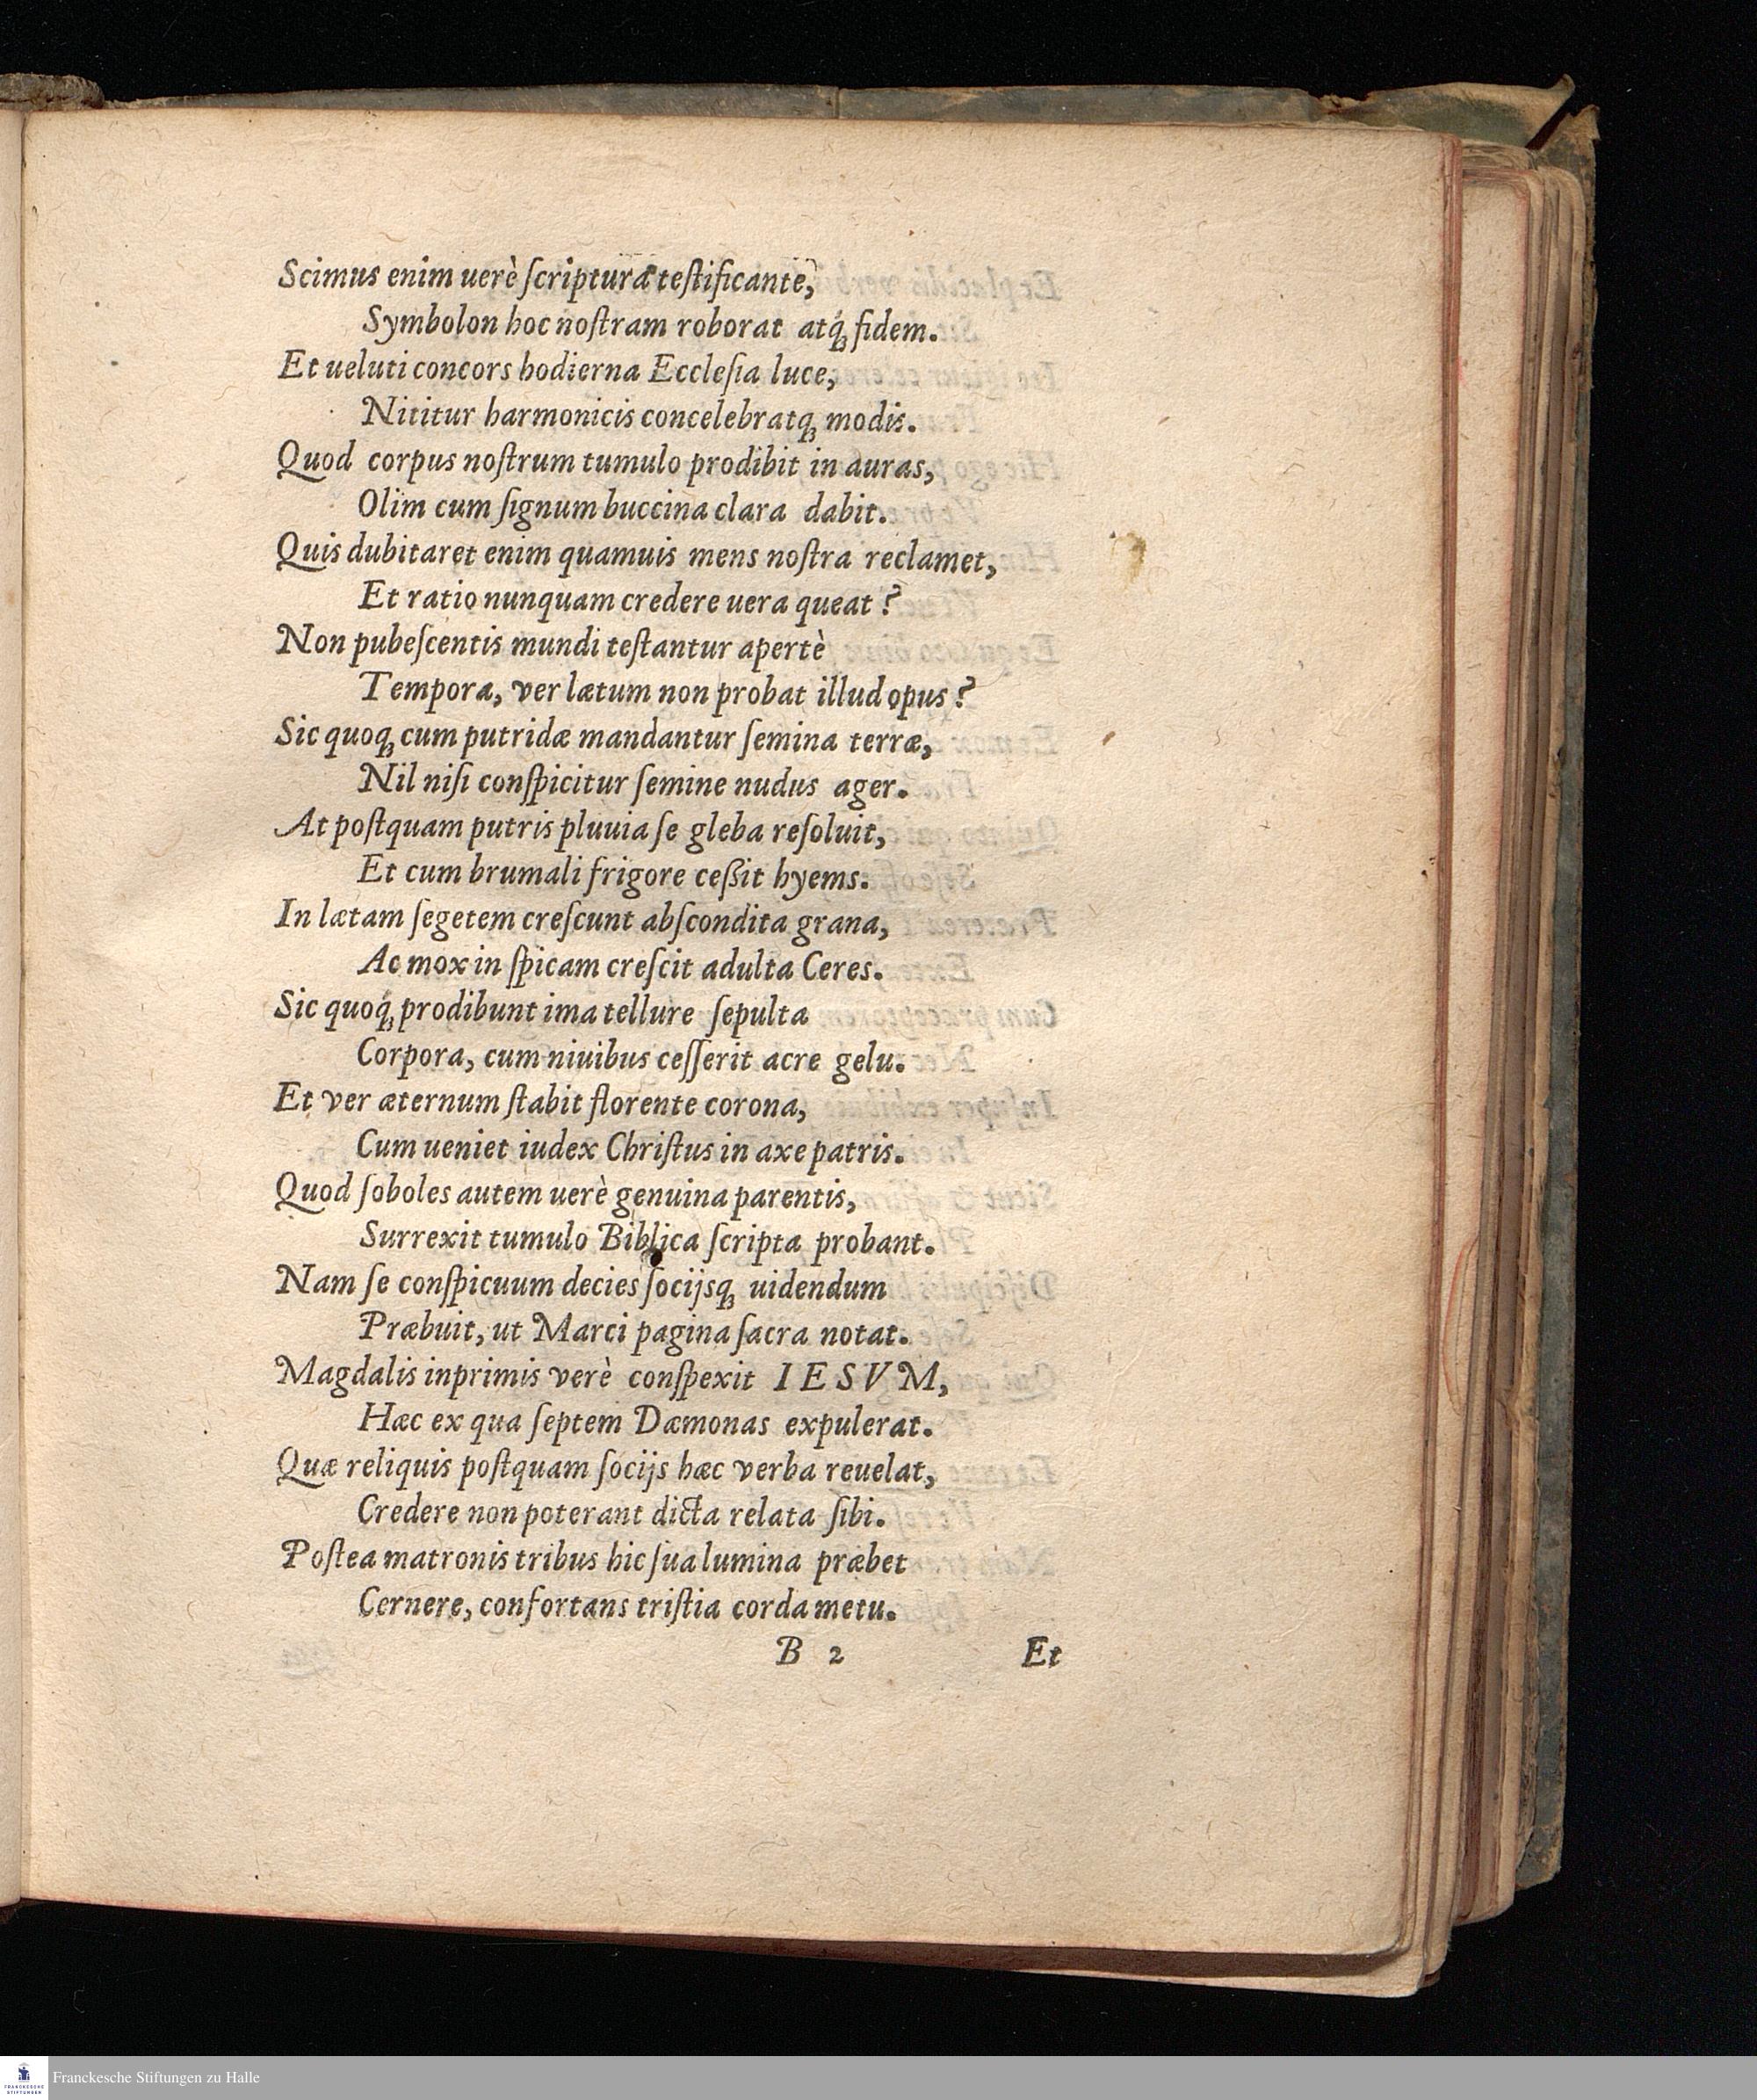 Scimus enim uerè ſcripturâ teſtificante,
Symbolon hoc noſtram roborat atq́ꝫ fidem.
Et ueluti concors hodierna Eccleſia luce,
Nititur harmonicis concelebratqꝫ modis.
Quod corpus noſtrum tumulo prodibit in auras,
Olim cum ſignum buccina clara dabit.
Quis dubitaret enim quamuis mens noſtra reclamet,
Et ratio nunquam credere uera queat?
Non pubeſcentis mundi teſtantur apertè
Tempora, ver lætum non probat illud opus?
Sic quoqꝫ cum putridæ mandantur ſemina terræ,
Nil niſi conſpicitur ſemine nudus ager.
At poſtquam putris pluuia ſe gleba reſoluit,
Et cum brumali frigore ceßit hyems.
In lætam ſegetem creſcunt abſcondita grana,
Ac mox in ſpicam creſcit adulta Ceres.
Sic quoq́ꝫ prodibunt ima tellure ſepulta
Corpora, cum niuibus ceſſerit acre gelu.
Et ver æternum ſtabit florente corona,
Cum ueniet iudex Chriſtus in axe patris.
Quod ſoboles autem uerè genuina parentis,
Surrexit tumulo Biblica ſcripta probant.
Nam ſe conſpicuum decies ſocijsqꝫ uidendum
Præbuit, ut Marci pagina ſacra notat.
Magdalis inprimis verè conſpexit IESVM,
Hæc ex qua ſeptem Dæmonas expulerat.
Quæ reliquis poſtquam ſocijs hæc verba reuelat,
Credere non poterant dicta relata ſibi.
Poſtea matronis tribus hic ſua lumina præbet
Cernere, confortans triſtia corda metu.
B 2 Et
Franckesche Stiftungen zu Halle